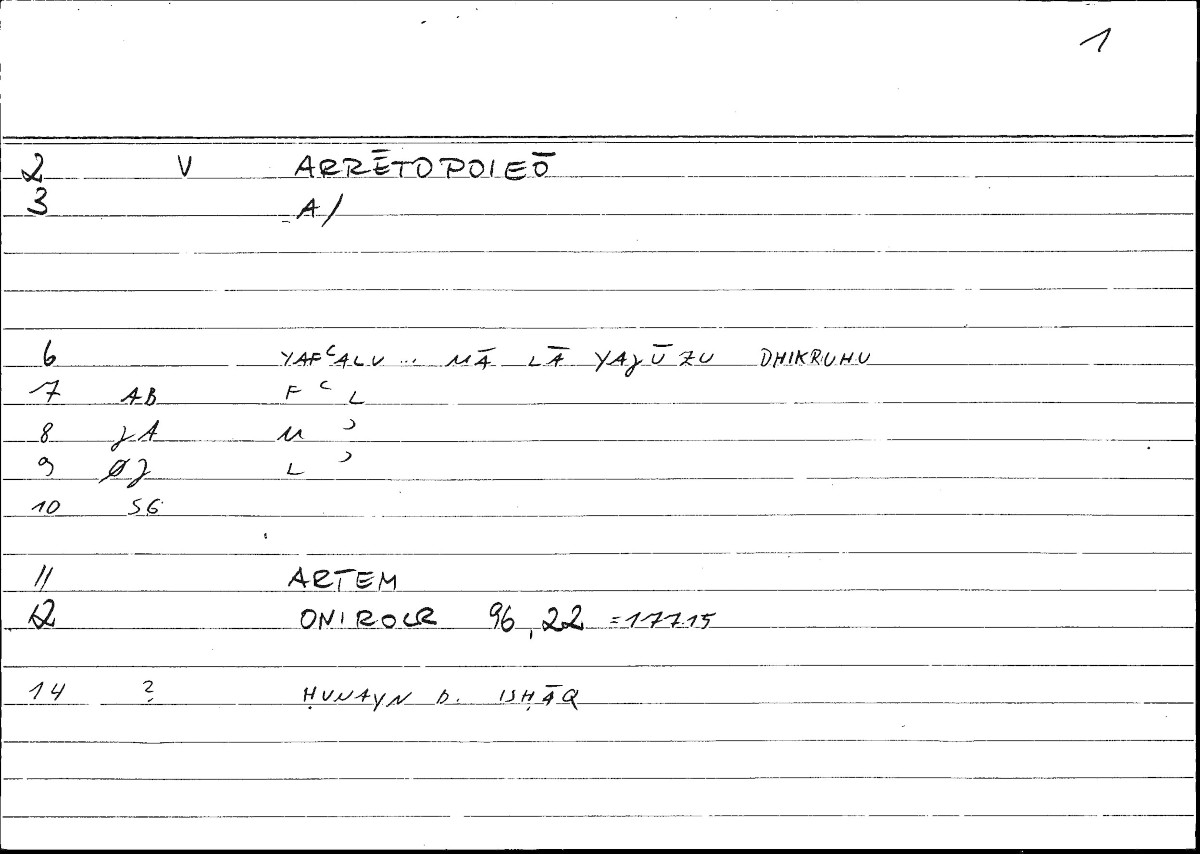 1
2 V ARRĒTOPOIEŌ
3 A/
6 YAFʿALU ... MĀ LĀ YAJŪZU DHIKRUHU
7 AB F ʿ L
8 JA M ʾ
9 ØJ L ʾ
10 SG
11 ARTEM
12 ONIROCR 96,22 = 177.15
14 ? ḤUNAYN B. ISḤĀQ